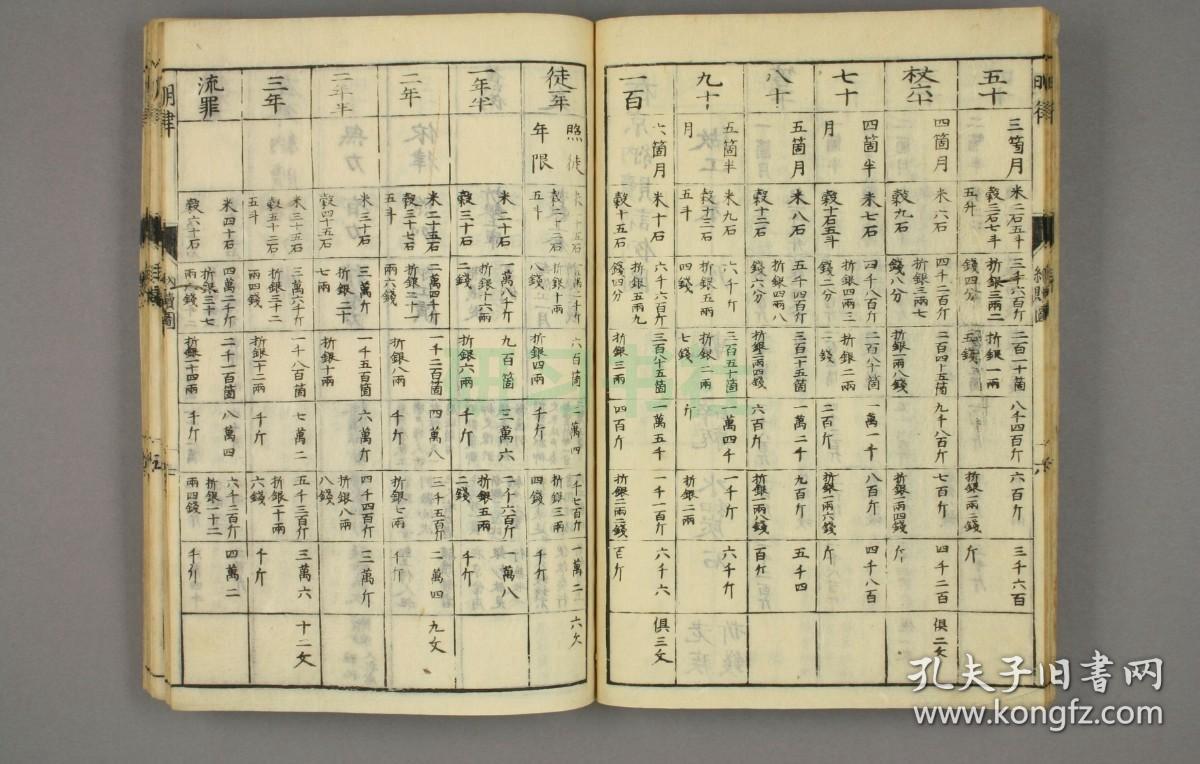 五十
三箇月
米二石五斗
穀二石七斗
五升
三千六百斤
折銀三兩二
錢四分
二百一十箇
折銀一兩
五錢
八千四百斤
六百斤
折銀一兩二錢
三千六百
斤
杖六十
四箇月
米六石
穀九石
四千二百斤
折銀三兩七
錢八分
二百四十五箇
折銀一兩八錢
九千八百斤
七百斤
折銀一兩四錢
四千二百
斤
俱二文
七十
四箇半
月
米七石
穀十石五斗
四千八百斤
折銀四兩三
錢二分
二百八十箇
折銀二兩
一萬一千
二百斤
八百斤
折銀一兩六錢
四千八百
斤
八十
五箇月
米八石
穀十二石
五千四百斤
折銀四兩八
錢六分
三百一十五箇
折銀二兩四錢
一萬二千
六百斤
九百斤
折銀一兩八錢
五千四
百斤
九十
五箇半
月
米九石
穀十三石
五斗
六千斤
折銀五兩
四錢
三百五十箇
折銀二兩
七錢
一萬四千
斤
一千斤
折銀二兩
六千斤
一百
六箇月
米十石
穀十五石
六千六百斤
折銀五兩九
錢四分
三百八十五箇
折銀三兩
一萬五千
四百斤
一千一百斤
折銀二兩二錢
六千六
百斤
俱三文
徒一年
照徒
年限
米十五石
穀二十二石
五斗
折銀十兩
八錢
六百箇
折銀四兩
二萬四
千斤
一千七百斤
折銀三兩
四錢
一萬二
千斤
六文
一年半
米二十石
穀三十石
一萬八千斤
折銀十六兩
二錢
九百箇
折銀六兩
三萬六
千斤
二千六百斤
折銀五兩
二錢
一萬八
千斤
二年
米二十五石
穀三十七石
五斗
二萬四千斤
折銀二十一
兩六錢
一千二百箇
折銀八兩
四萬八
千斤
三千五百斤
折銀七兩
二萬四
千斤
九文
二年半
米三十石
穀四十五石
三萬斤
折銀二十
七兩
一千五百箇
折銀十兩
六萬斤
四千四百斤
折銀八兩
八錢
三萬斤
三年
米三十五石
穀五十二石
五斗
三萬六千斤
折銀三十二
兩四錢
一千八百箇
折銀十二兩
七萬二
千斤
五千三百斤
折銀十兩
六錢
三萬六
千斤
十二文
流罪
米四十石
穀六十石
四萬二千斤
折銀三十七
兩八錢
二千一百箇
折銀十四兩
八萬四
千斤
六千二百斤
折銀十二
兩四錢
四萬二
千斤
明律
孔夫子旧书网
www.kongfz.com